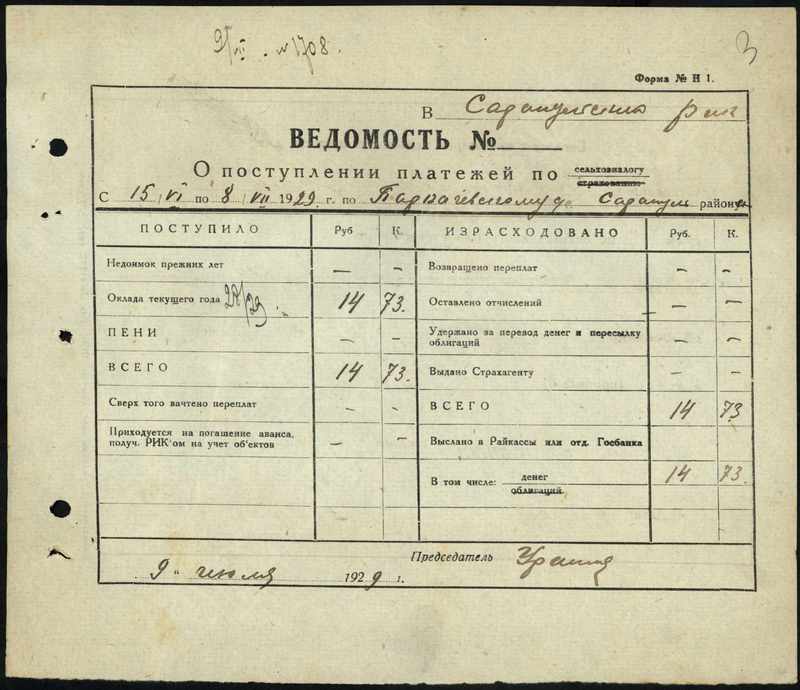 9/VII . № 1708.
3
Форма № Н 1.
В Сарапульский рик
ВЕДОМОСТЬ №
О поступлении платежей по сельхозналогу страхованию
С 15/VI по 8 VII 1929 г. по Сарапул района
ПОСТУПИЛО Руб К. ИЗРАСХОДОВАНО Руб. К.
Недоимок прежних лет — — Возвращено переплат — —
Оклада текущего года 28/29 14 73. Оставлено отчислений — —
ПЕНИ — — Удержано за перевод денег и пересылку облигаций — —
ВСЕГО 14 73. Выдано Страхагенту — —
Сверх того вачтено переплат — — ВСЕГО 14 73
Приходуется на погашение аванса, получ. РИК'ом на учет об'ектов — — Выслано в Райкассы или отд. Госбанка
В том числе: денег облигаций 14 73.
Председатель
9" июля 1929 г.